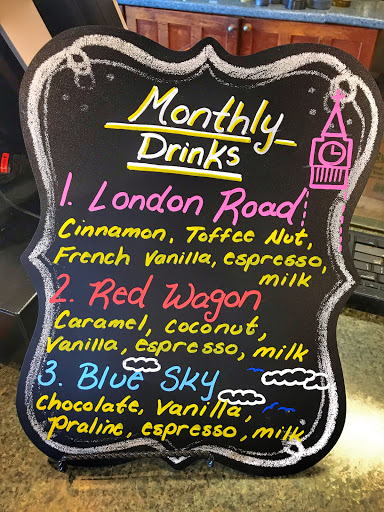 Monthly
Drinks
1. London Road
Cinnamon, Toffee Nut,
French Vanilla, espresso,
milk
2. Red Wagon
Caramel, coconut,
Vanilla, espresso, milk
3. Blue Sky
Chocolate, vanilla,
praline, espresso, milk